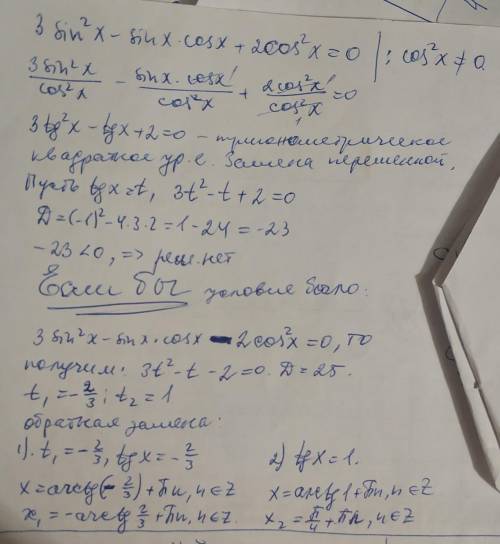 3 sin²x - sinx·cosx + 2cos²x = 0 | : cos²x ≠ 0
3sin²x/cos²x - sinx·cosx/cos²x + 2cos²x/cos²x = 0
3tg²x - tgx + 2 = 0 - тригонометрическое
квадратное ур.е. Замена переменной.
Пусть tgx = t, 3t² - t + 2 = 0
Д = (-1)² - 4·3·2 = 1 - 24 = -23
-23 < 0, => реш. нет
Если бы условие было:
3 sin²x - sinx·cosx - 2cos²x = 0, то
получим: 3t² - t - 2 = 0. Д = 25.
t₁ = -2/3; t₂ = 1
обратная замена:
1). t₁ = -2/3, tgx = -2/3 2) tgx = 1.
x = arctg(-2/3) + πn, n∈Z x = arctg1 + πn, n∈Z
x₁ = -arctg 2/3 + πn, n∈Z. x₂ = π/4 + πn, n∈Z